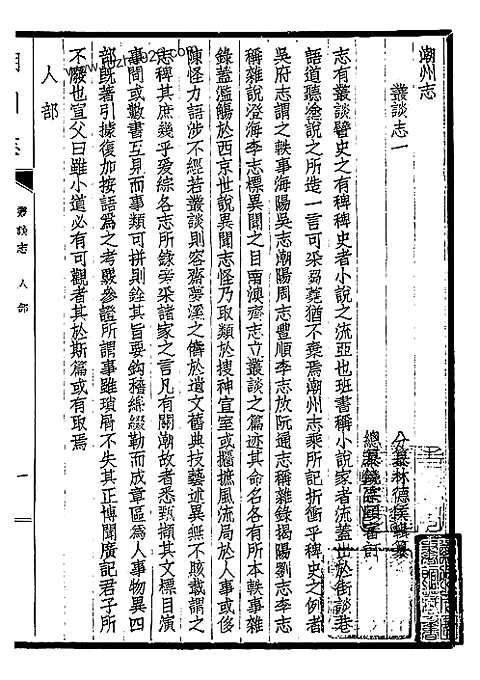 潮州志
叢談志一
分纂林德侯輯纂
總纂饒宗頤審訂
志有叢談譬史之有稗稗史者小說之流亞也班書稱小說家者流蓋出於街談巷
語道聽塗說之所造一言可采芻蕘猶不棄焉潮州志乘所記折衝乎稗史之例者
吳府志謂之軼事海陽吳志潮陽周志豐順李志放阮通志稱雜錄揭陽劉志李志
稱雜說澄海李志標異聞之目南澳齊志立叢談之篇迹其命名各有所本軼事雜
錄蓋濫觴於西京世說異聞志怪乃取類於搜神宣室或攟摭風流局於人事或侈
陳怪力語涉不經若叢談則容齋夢溪之儔於遺文舊典技藝述異無不賅載謂之
志稗其庶幾乎爰綜各志所錄旁采諸家之言凡有關潮故者悉甄擷其文標目演
事間或數書互見而事類可拼則銓其旨要鈎稽綈綴勒而成章區為人事物異四
部既著引據復加按語為之考覈參證所謂事雖瑣屑不失其正博聞廣記君子所
不廢也宣父曰雖小道必有可觀者其於斯篇或有取焉
人部
叢談志 人部
一